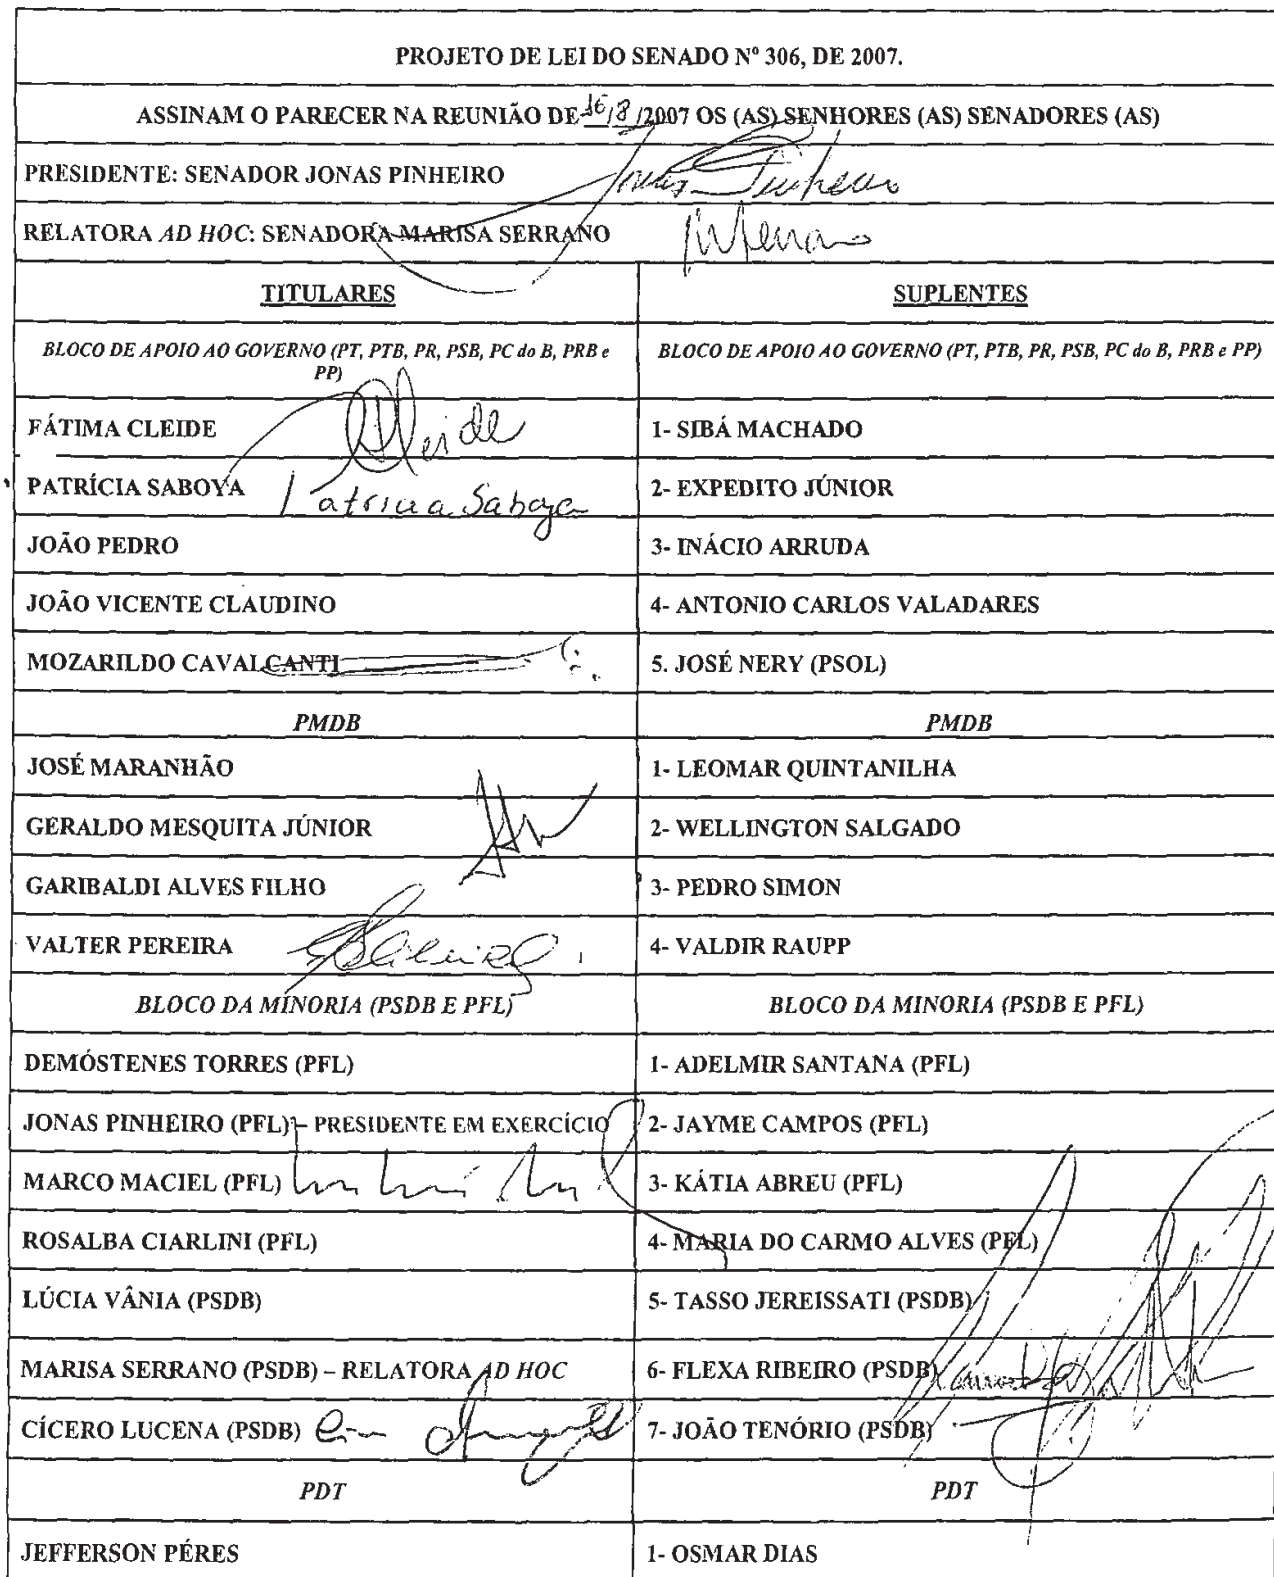 PROJETO DE LEI DO SENADO Nº 306, DE 2007.
ASSINAM O PARECER NA REUNIÃO DE 16/8/2007 OS (AS) SENHORES (AS) SENADORES (AS)
PRESIDENTE: SENADOR JONAS PINHEIRO Jonas Pinheiro
RELATORA AD HOC: SENADORA MARISA SERRANO MSerrano
TITULARES SUPLENTES
BLOCO DE APOIO AO GOVERNO (PT, PTB, PR, PSB, PC do B, PRB e PP) BLOCO DE APOIO AO GOVERNO (PT, PTB, PR, PSB, PC do B, PRB e PP)
FÁTIMA CLEIDE Cleide 1- SIBÁ MACHADO
PATRÍCIA SABOYA Patricia Saboya 2- EXPEDITO JÚNIOR
JOÃO PEDRO 3- INÁCIO ARRUDA
JOÃO VICENTE CLAUDINO 4- ANTONIO CARLOS VALADARES
MOZARILDO CAVALCANTI 5. JOSÉ NERY (PSOL)
PMDB PMDB
JOSÉ MARANHÃO 1- LEOMAR QUINTANILHA
GERALDO MESQUITA JÚNIOR 2- WELLINGTON SALGADO
GARIBALDI ALVES FILHO 3- PEDRO SIMON
VALTER PEREIRA 4- VALDIR RAUPP
BLOCO DA MINORIA (PSDB E PFL) BLOCO DA MINORIA (PSDB E PFL)
DEMÓSTENES TORRES (PFL) 1- ADELMIR SANTANA (PFL)
JONAS PINHEIRO (PFL) – PRESIDENTE EM EXERCÍCIO 2- JAYME CAMPOS (PFL)
MARCO MACIEL (PFL) 3- KÁTIA ABREU (PFL)
ROSALBA CIARLINI (PFL) 4- MARIA DO CARMO ALVES (PFL)
LÚCIA VÂNIA (PSDB) 5- TASSO JEREISSATI (PSDB)
MARISA SERRANO (PSDB) – RELATORA AD HOC 6- FLEXA RIBEIRO (PSDB)
CÍCERO LUCENA (PSDB) 7- JOÃO TENÓRIO (PSDB)
PDT PDT
JEFFERSON PÉRES 1- OSMAR DIAS